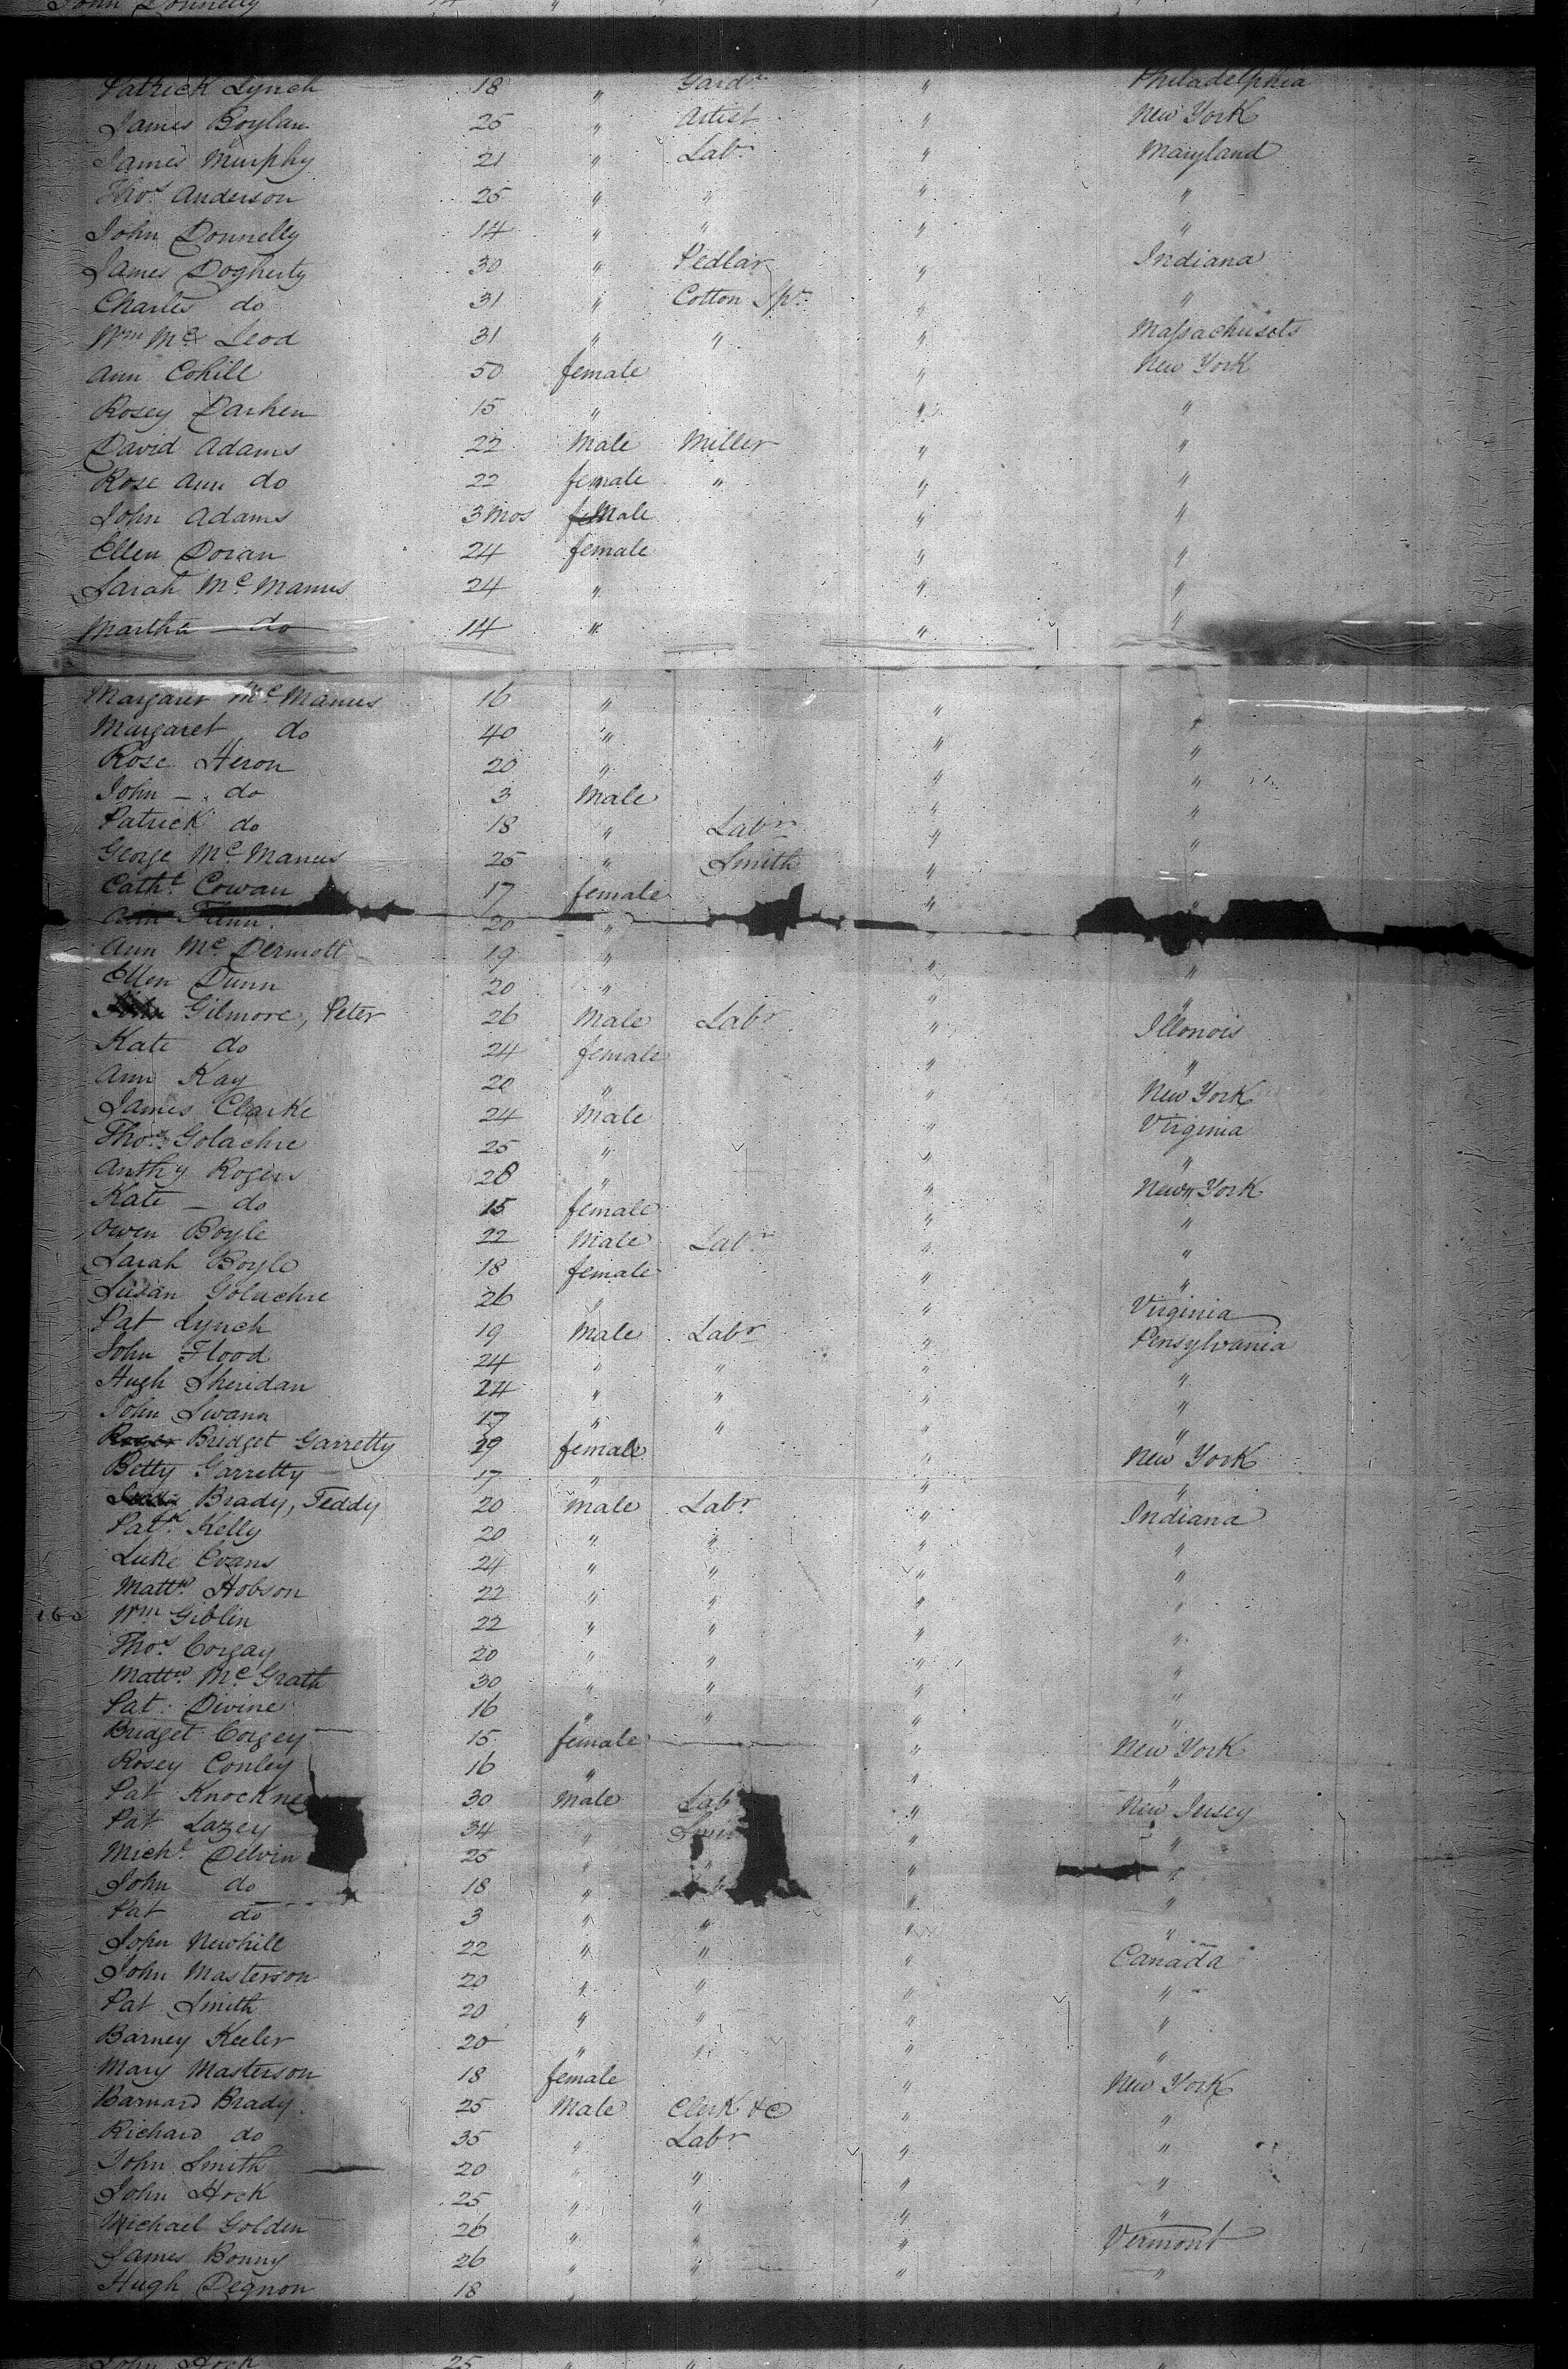 John Donnelly 14 "
Patrick Lynch 18 " Gardr " Philadelphia
James Boylan 25 " Artist " New York
James Murphy 21 " Labr " Maryland
Thos Anderson 25 " " " "
John Donnelly 14 " " " "
James Dogherty 30 " Pedlar " Indiana
Charles do 31 " Cotton Spr " "
Wm Mc Leod 31 " " " Massachusets
Ann Cohill 50 female " New York
Rosey Darken 15 " " "
David Adams 22 Male Miller " "
Rose Ann do 22 female " " "
John Adams 3 Mos Male " "
Ellen Doran 24 female " "
Sarah Mc Manus 24 " " "
Martha do 14 " " "
Margaret Mc Manus 16 " " "
Margaret do 40 " " "
Rose Heron 20 " " "
John - do 3 Male " "
Patrick do 18 " Labr " "
George Mc Manus 25 " Smith " "
Catht Cowan 17 female " "
Ann Flinn 20 " "
Ann Mc Dermott 19 " " "
Ellen Dunn 20 " " "
Gilmore, Peter 26 Male Labr " Illonois
Kate do 24 female " "
Ann Kay 20 " " New York
James Clarke 24 Male " Virginia
Thos Golachre 25 " " "
Anthy Rogers 28 " " New York
Kate - do 15 female " "
Owen Boyle 22 Male Labr " "
Sarah Boyle 18 female " "
Susan Golachre 26 " " Virginia
Pat Lynch 19 Male Labr " Pensylvania
John Flood 24 " " " "
Hugh Sheridan 24 " " " "
John Swann 17 " " " "
Roger Bridget Garretty 29 female " New York
Betty Garretty 17 " " "
Brady, Teddy 20 Male Labr " Indiana
Patk Kelly 20 " " " "
Luke Evans 24 " " " "
Mattw Hobson 22 " " " "
160 Wm Giblin 22 " " " "
Thos Corgay 20 " " " "
Mattw Mc Grath 30 " " " "
Pat Divine 16 " " " "
Bridget Corgey 15 female " New York
Rosey Conley 16 " " "
Pat 30 Male Lab " New Jersey
Pat Lazey 34 " " "
Michl Delvin 25 " " " "
John do 18 " " "
Pat do 3 " " " "
John Newhill 22 " " " Canada
John Masterson 20 " " " "
Pat Smith 20 " " " "
Barney Keeler 20 " " " "
Mary Masterson 18 female " New York
Barnard Brady 25 Male Clerk &c " "
Richard do 35 " Labr " "
John Smith 20 " " " "
John Hock 25 " " " "
Michael Golden 26 " " " Vermont
James Bonny 26 " " " "
Hugh Degnon 18
John Hock 25